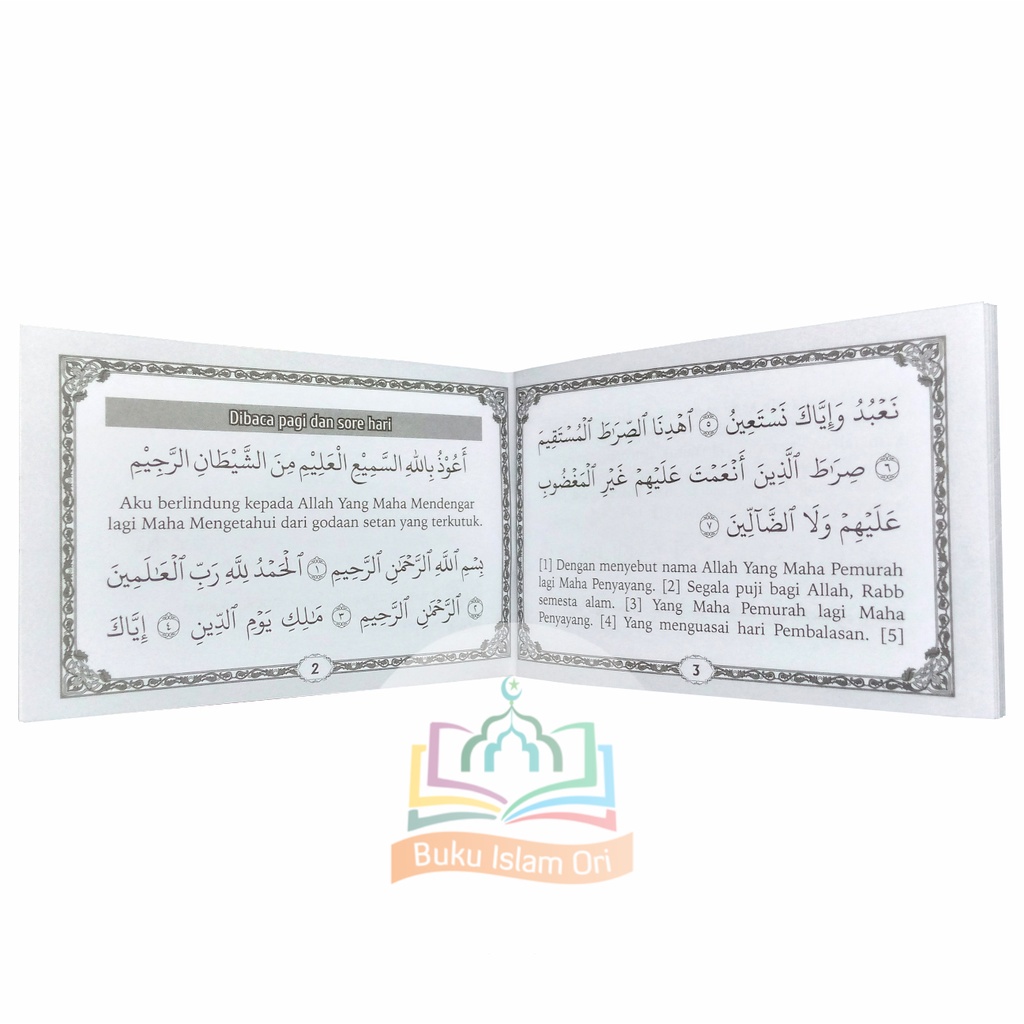 Dibaca pagi dan sore hari
أَعُوْذُ بِاللهِ السَّمِيْعِ الْعَلِيْمِ مِنَ الشَّيْطَانِ الرَّجِيْمِ
Aku berlindung kepada Allah Yang Maha Mendengar
lagi Maha Mengetahui dari godaan setan yang terkutuk.
بِسْمِ ٱللَّهِ ٱلرَّحْمَٰنِ ٱلرَّحِيمِ ١ ٱلْحَمْدُ لِلَّهِ رَبِّ ٱلْعَٰلَمِينَ
٢ ٱلرَّحْمَٰنِ ٱلرَّحِيمِ ٣ مَٰلِكِ يَوْمِ ٱلدِّينِ ٤ إِيَّاكَ
2
نَعْبُدُ وَإِيَّاكَ نَسْتَعِينُ ٥ ٱهْدِنَا ٱلصِّرَٰطَ ٱلْمُسْتَقِيمَ
٦ صِرَٰطَ ٱلَّذِينَ أَنْعَمْتَ عَلَيْهِمْ غَيْرِ ٱلْمَغْضُوبِ
عَلَيْهِمْ وَلَا ٱلضَّآلِّينَ ٧
[1] Dengan menyebut nama Allah Yang Maha Pemurah
lagi Maha Penyayang. [2] Segala puji bagi Allah, Rabb
semesta alam. [3] Yang Maha Pemurah lagi Maha
Penyayang. [4] Yang menguasai hari Pembalasan. [5]
3
Buku Islam Ori